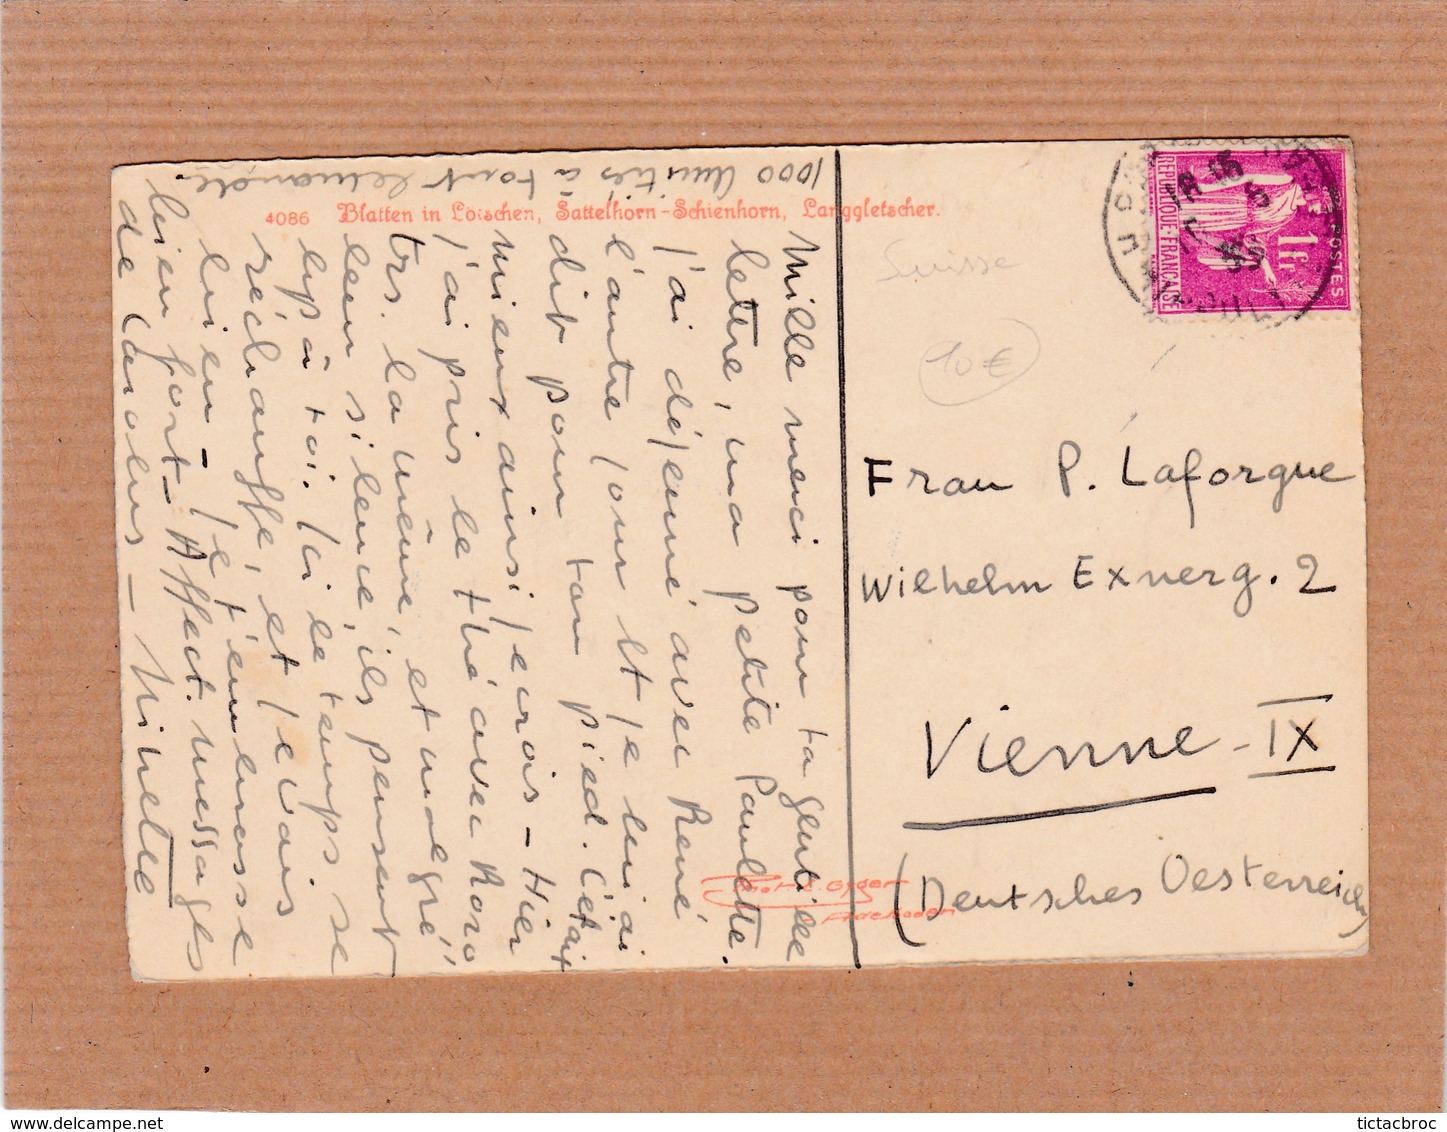 1000 Amitiés à tout le monde.
4086 Blatten in Lötschen, Sattelhorn-Schienhorn, Langgletscher.
Mille merci pour ta gentille
lettre, ma petite Paulette.
J'ai déjeuné avec René
l'autre jour et je lui ai
dit pour ton pied. C'était
mieux ainsi, je crois - Hier
j'ai pris le thé avec Roro
trs. la même, et malgré
leur silence, ils pensent
bp à toi. Ici le temps se
réchauffe, et je vais
bien - Je t'embrasse
bien fort - Affect. messages
de Carolus - Miette
Suisse
10 €
REPUBLIQUE-FRANCAISE
POSTES
1f.
18 05
5
35
Frau P. Laforgue
Wilhelm Exnerg. 2
Vienne - IX
(Deutsches Oesterreich)
Phot. E. Gyger
Adelboden
tictacbroc
www.delcampe.net